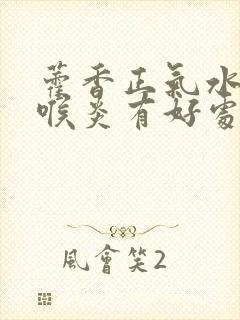 藿香正氣水
喉炎有好處
風會笑2